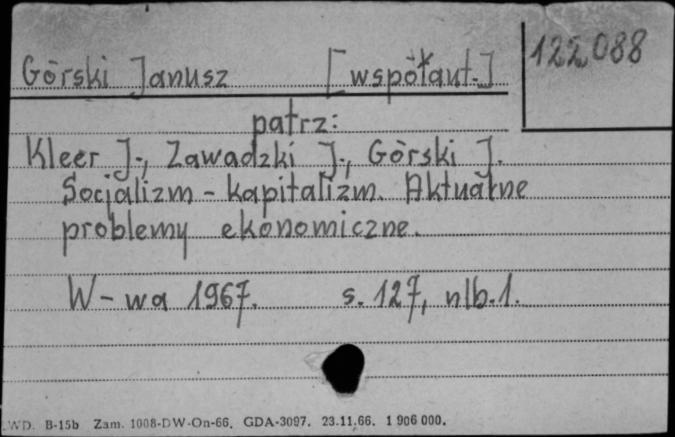 122088
Górski Janusz [współaut.]
patrz:
Kleer J., Zawadzki J., Górski J.
Socjalizm - kapitalizm. Aktualne
problemy ekonomiczne.
W-wa 1967. s. 127, nlb.1.
WD. B-15b Zam. 1008-DW-On-66. GDA-3097. 23.11.66. 1 906 000.